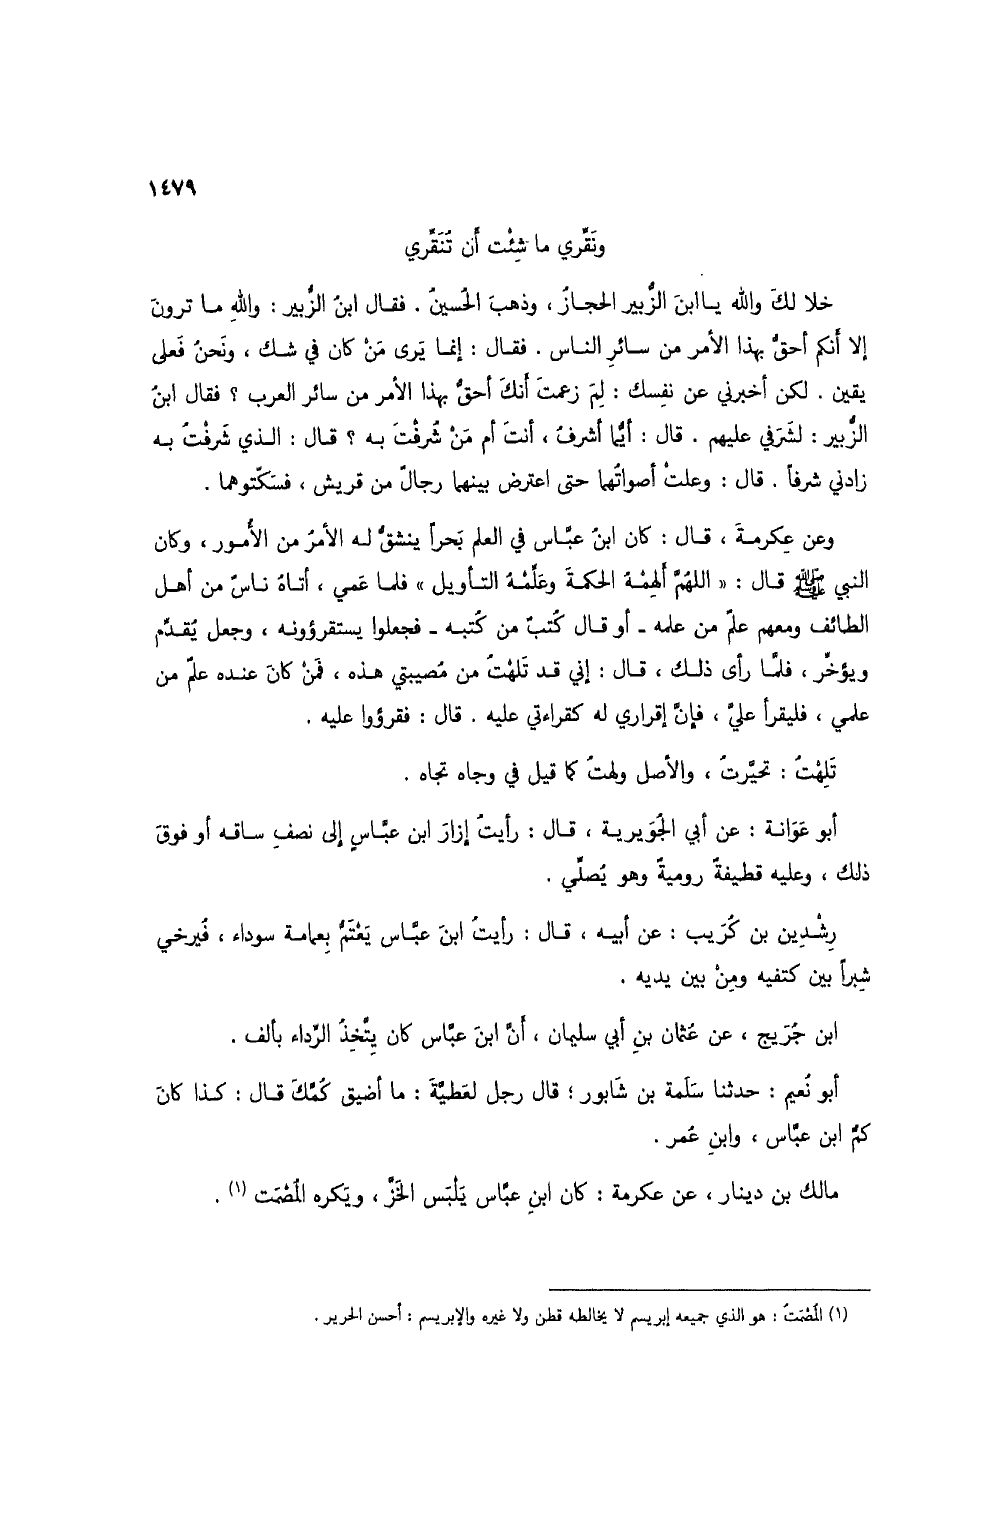 ١٤٧٩
ونَقِّري ما شِئْت أَن تُنَقِّري
خلا لكَ والله يا ابنَ الزُّبير الحجازُ ، وذهبَ الحُسينُ . فقال ابنُ الزُّبير : واللهِ ما ترونَ
إلا أَنكم أحقُّ بهذا الأمر من سائرِ الناس . فقال : إنما يَرى مَنْ كان في شك ، ونَحنُ فَعلى
يقين . لكن أخبرني عن نفسِك : لِمَ زعمتَ أَنكَ أحقُّ بهذا الأمر من سائر العرب ؟ فقال ابنُ
الزُّبير : لشَرَفي عليهم . قال : أيُّما أشرفُ ، أنتَ أم مَنْ شُرفْتَ به ؟ قال : الذي شَرفْتُ به
زادني شرفاً . قال : وعلتْ أصواتُهما حتى اعترض بينهما رجالٌ من قريش ، فسَكّتوهما .
وعن عِكرمةَ ، قال : كان ابنُ عبَّاس في العلم بَحراً ينشقُّ له الأمرُ من الأُمور ، وكان
النبي ﷺ قال : « اللهُمَّ أَلهِمْهُ الحكمةَ وعَلِّمْهُ التأويل » فلما عَمي ، أتاهُ ناسٌ من أهل
الطائف ومعهم علمٌ من علمه ـ أو قال كُتبٌ من كُتبه ـ فجعلوا يستقرؤونه ، وجعل يُقدِّم
ويؤخِّر ، فلمَّا رأى ذلك ، قال : إني قد تَلِهْتُ من مُصيبتي هذه ، فمَنْ كانَ عنده علمٌ من
علمي ، فليقرأ عليَّ ، فإنَّ إقراري له كقراءتي عليه . قال : فقرؤوا عليه .
تَلِهْتُ : تحيَّرتُ ، والأصل ولهتُ كما قيل في وجاه تجاه .
أبو عَوَانة : عن أبي الجُوَيرية ، قال : رأيتُ إزارَ ابن عبَّاسٍ إلى نصفِ ساقه أو فوقَ
ذلك ، وعليه قطيفةٌ روميةٌ وهو يُصلِّي .
رِشْدِين بن كُرَيب : عن أبيه ، قال : رأيتُ ابنَ عبَّاس يَعْتَمُّ بِعمامة سوداء ، فيُرخي
شِبراً بين كتفيه ومِنْ بين يديه .
ابن جُرَيج ، عن عُثمان بنِ أبي سليمان ، أَنَّ ابنَ عبَّاس كان يتَّخِذُ الرِّداء بألف .
أبو نُعيم : حدثنا سَلَمة بن شَابور ؛ قال رجل لعَطيَّةَ : ما أضيق كُمَّكَ قال : كذا كانَ
كمُّ ابن عبَّاس ، وابنِ عُمر .
مالك بن دينار ، عن عكرمة : كان ابنِ عبَّاس يَلْبَس الخَزَّ ، ويَكره المُصْمَت (١) .
(١) المُصْمَتُ : هو الذي جميعه إبريسم لا يخالطه قطن ولا غيره والإبريسم : أحسن الحرير .